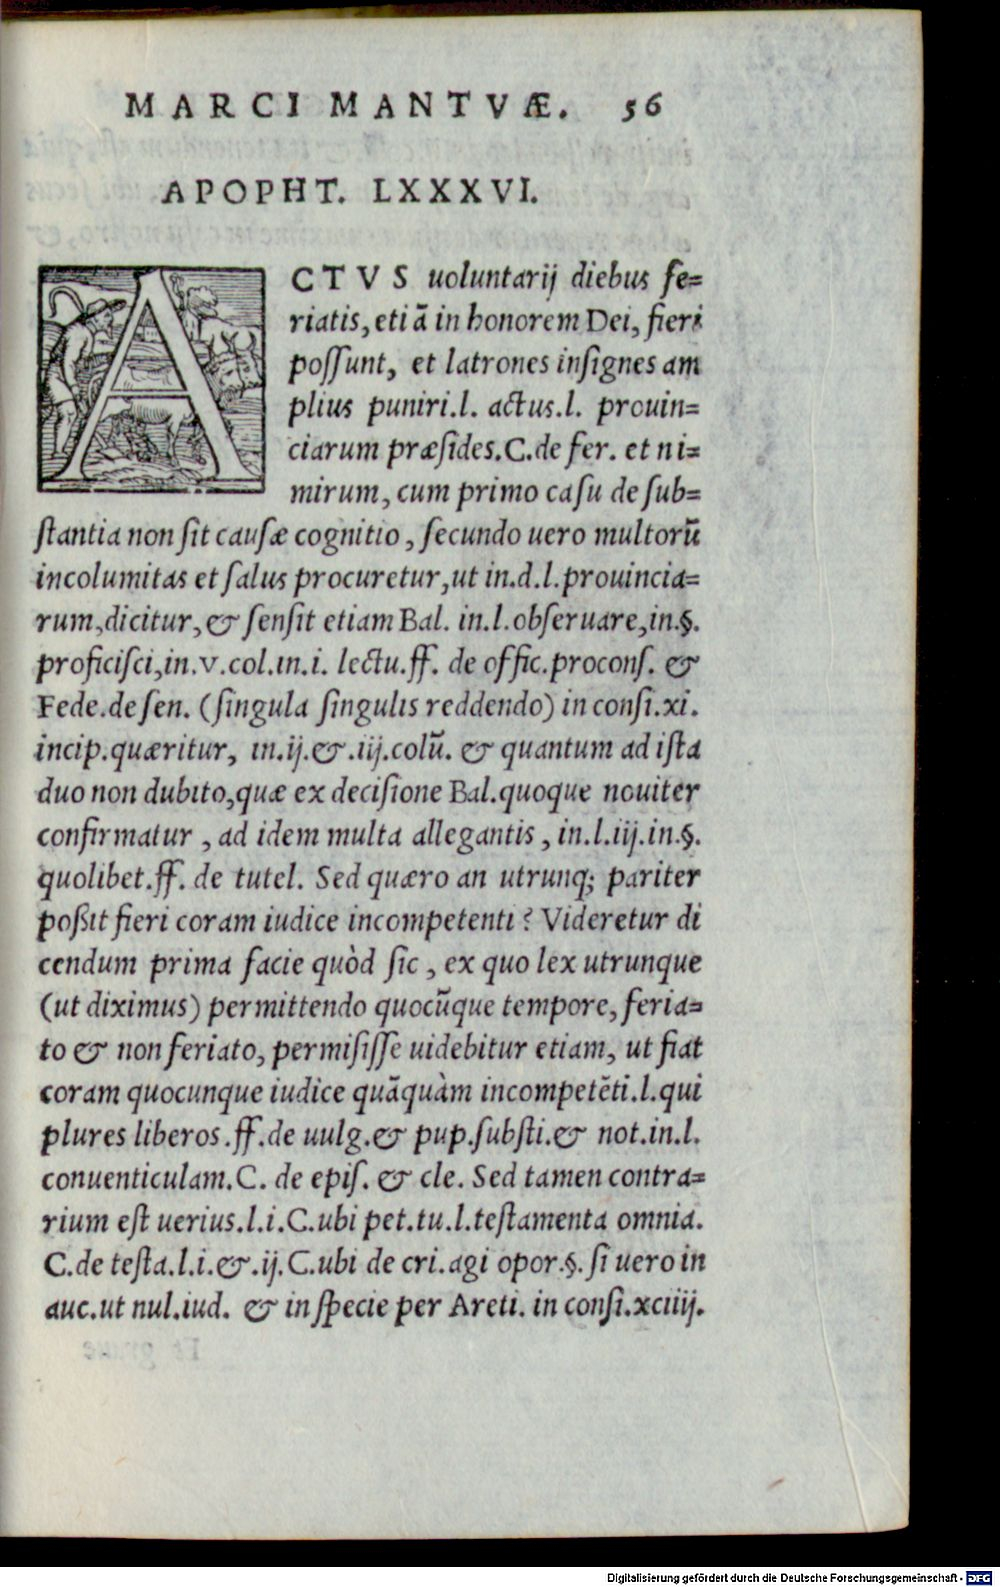 MARCI MANTVÆ. 56
APOPHT. LXXXVI.
ACTVS uoluntarij diebus fe=
riatis, etiā in honorem Dei, fieri
poſſunt, et latrones inſignes am
plius puniri.l. actus.l. prouin=
ciarum præſides.C.de fer. et ni=
mirum, cum primo caſu de ſub=
ſtantia non ſit cauſæ cognitio, ſecundo uero multorū
incolumitas et ſalus procuretur,ut in.d.l.prouincia=
rum,dicitur,& ſenſit etiam Bal. in.l.obſeruare,in.§.
proficiſci,in.v.col.in.i. lectu.ff. de offic.proconſ. &
Fede.de ſen. (ſingula ſingulis reddendo) in conſi.xi.
incip.quæritur, in.ij.&.iij.colū. & quantum ad iſta
duo non dubito,quæ ex deciſione Bal.quoque nouiter
confirmatur , ad idem multa allegantis , in.l.iij.in.§.
quolibet.ff. de tutel. Sed quæro an utrunq; pariter
poßit fieri coram iudice incompetenti? Videretur di
cendum prima facie quòd ſic , ex quo lex utrunque
(ut diximus) permittendo quocūque tempore, feria=
to & non feriato, permiſiſſe uidebitur etiam, ut fiat
coram quocunque iudice quāquàm incompetēti.l.qui
plures liberos.ff.de uulg.& pup.ſubſti.& not.in.l.
conuenticulam.C. de epiſ. & cle. Sed tamen contra=
rium eſt uerius.l.i.C.ubi pet.tu.l.teſtamenta omnia.
C.de teſta.l.i.&.ij.C.ubi de cri.agi opor.§. ſi uero in
auc.ut nul.iud. & in ſpecie per Areti. in conſi.xciiij.
Digitalisierung gefördert durch die Deutsche Forschungsgemeinschaft - DFG